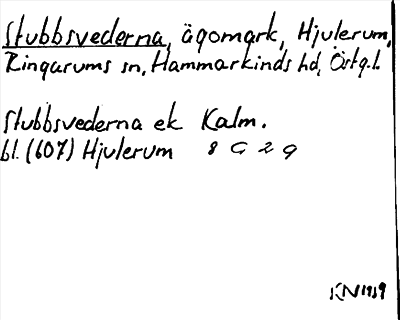 Stubbsvederna, ägomark, Hjulerum,
Ringarums sn, Hammarkinds hd, Östg.l.
Stubbsvederna ek Kalm.
bl. (607) Hjulerum 8 G 2 g
KN 1969